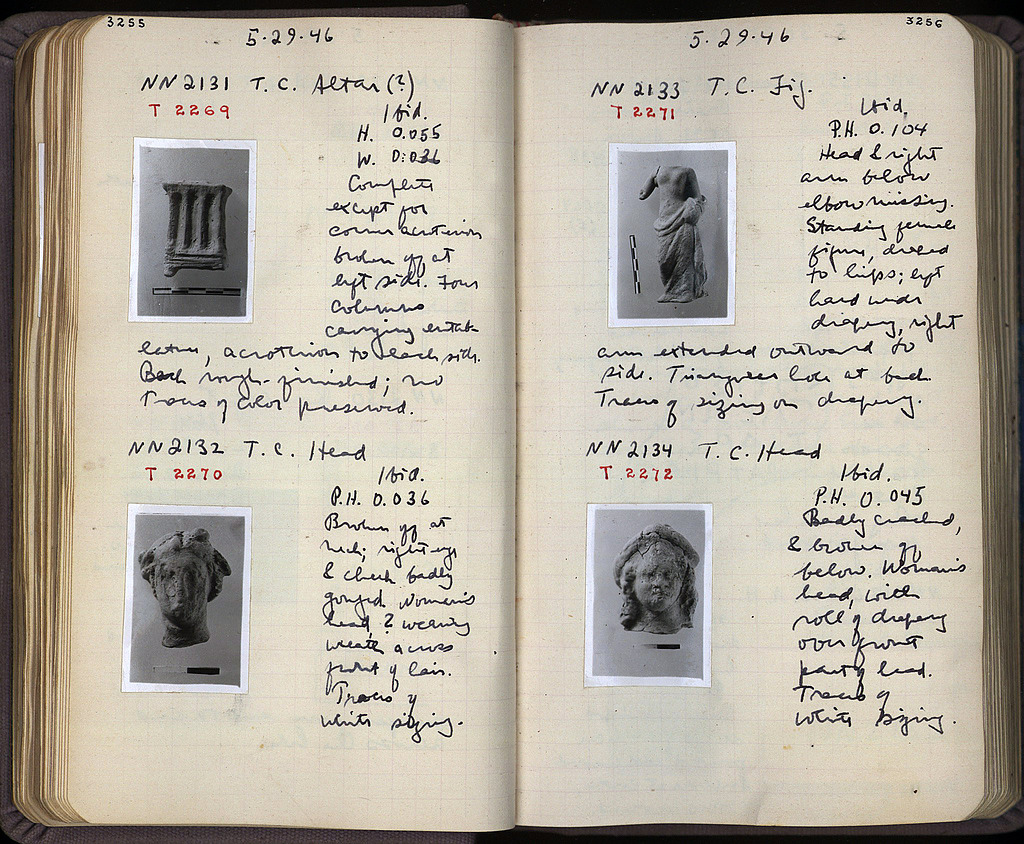 3255
5·29·46
NN 2131 T. C. Altar (?)
T 2269
Ibid.
H. 0.055
W. 0.036
Complete
except for
corner acroterion
broken off at
left side. Four
columns
carrying entab-
lature, acroterion to each side.
Back rough-finished; no
Traces of color preserved.
NN 2132 T. C. Head
T 2270
Ibid.
P.H. 0.036
Broken off at
neck; right eye
& cheek badly
gouged. Woman's
head, ? wearing
wreath across
front of hair.
Traces of
white sizing.
3256
5·29·46
NN 2133 T. C. Fig.
T 2271
Ibid.
P.H. 0.104
Head & right
arm below
elbow missing.
Standing female
figure, draped
to hips; left
hand under
drapery, right
arm extended outward to
side. Triangular hole at back.
Traces of sizing on drapery.
NN 2134 T. C. Head
T 2272
Ibid.
P.H. 0.045
Badly cracked,
& broken off
below. Woman's
head, with
roll of drapery
over front
part of head.
Traces of
white sizing.